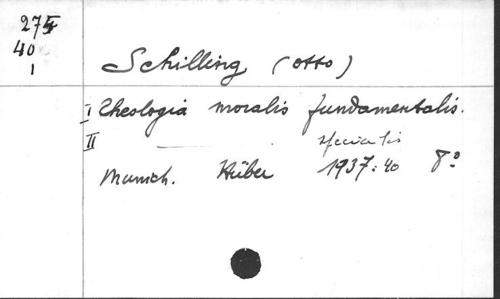 275
40
1
Schilling (Otto)
I Theologia moralis fundamentalis.
II ——— specialis
Munich. Hüber 1937:40 8°